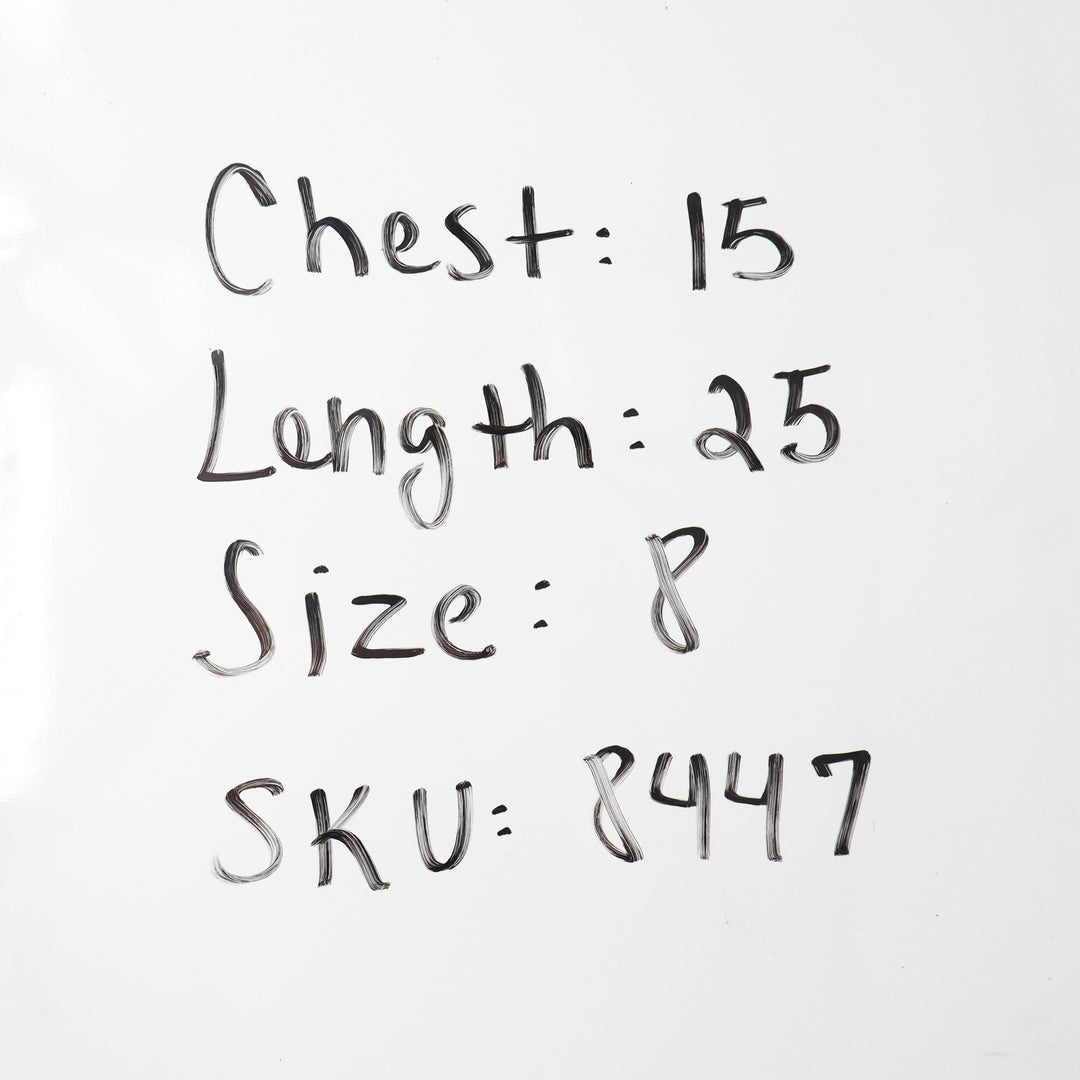 Chest: 15
Length: 25
Size: 8
SKU: 8447